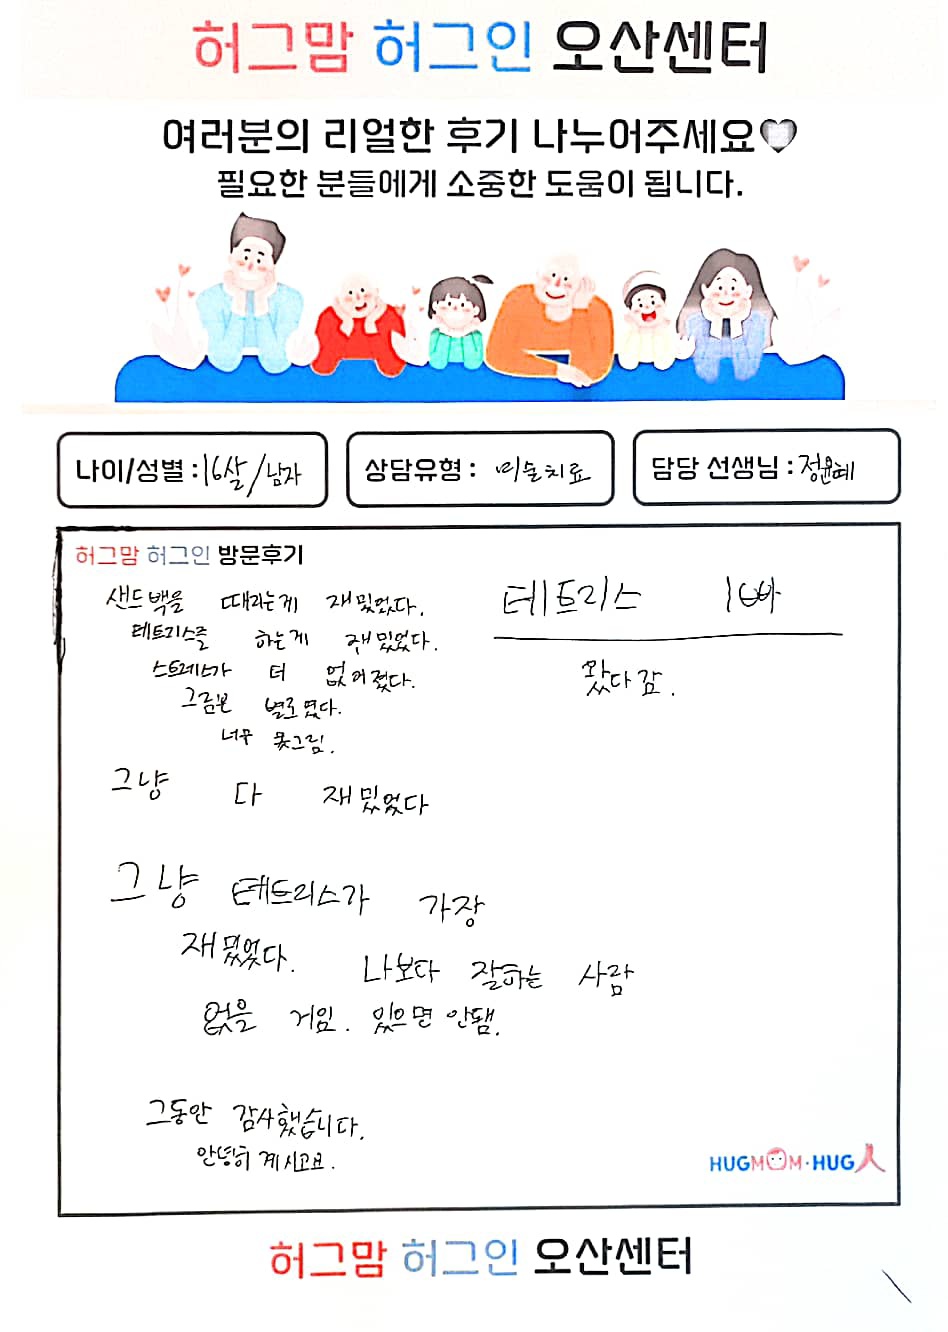 허그맘 허그인 오산센터
여러분의 리얼한 후기 나누어주세요
필요한 분들에게 소중한 도움이 됩니다.
나이/성별 : 16살/남자
상담유형 : 미술치료
담당 선생님 : 정윤혜
허그맘 허그인 방문후기
샌드백을 때라는게 재밌었다.
테트리스를 하는게 재밌었다.
스트레스가 더 없어졌다.
그림은 별로였다.
너무 못그림.
그냥 다 재밌었다
테트리스 1빠
왔다감.
그냥 테트리스가 가장
재밌었다. 나보다 잘하는 사람
없을 거임. 있으면 안됌.
그동안 감사했습니다.
안녕히 계시고.
HUGMOM·HUG人
허그맘 허그인 오산센터